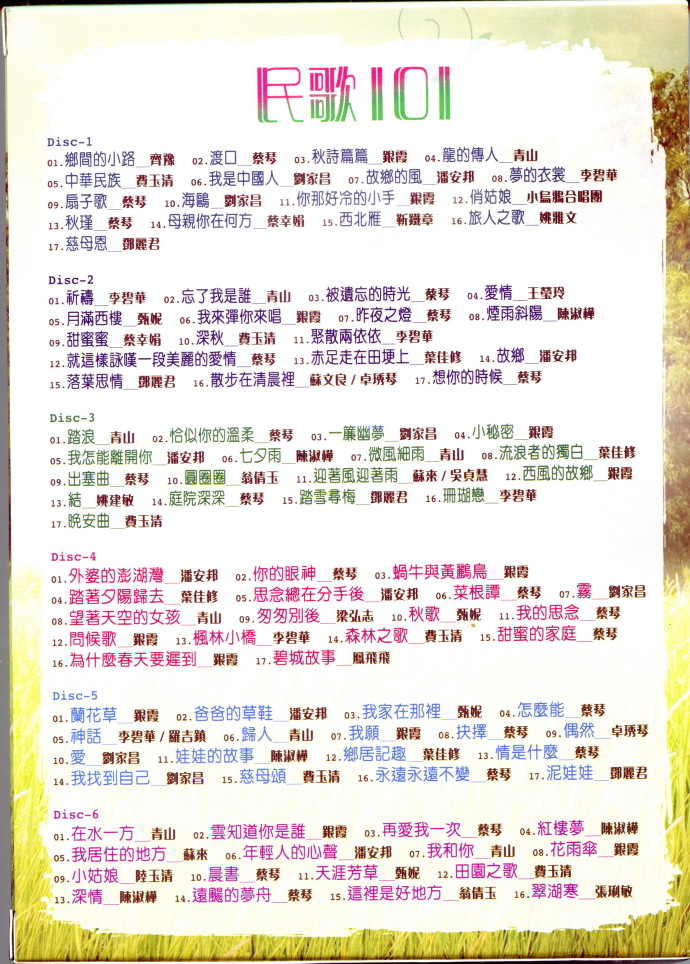 民歌101
Disc-1
01.鄉間的小路__齊豫 02.渡口__蔡琴 03.秋詩篇篇__銀霞 04.龍的傳人__青山
05.中華民族__費玉清 06.我是中國人__劉家昌 07.故鄉的風__潘安邦 08.夢的衣裳__李碧華
09.扇子歌__蔡琴 10.海鷗__劉家昌 11.你那好冷的小手__銀霞 12.俏姑娘__小烏鴉合唱團
13.秋瑾__蔡琴 14.母親你在何方__蔡幸娟 15.西北雁__靳鐵章 16.旅人之歌__姚雅文
17.慈母恩__鄧麗君
Disc-2
01.祈禱__李碧華 02.忘了我是誰__青山 03.被遺忘的時光__蔡琴 04.愛情__王瑩玲
05.月滿西樓__甄妮 06.我來彈你來唱__銀霞 07.昨夜之燈__蔡琴 08.煙雨斜陽__陳淑樺
09.甜蜜蜜__蔡幸娟 10.深秋__費玉清 11.聚散兩依依__李碧華
12.就這樣詠嘆一段美麗的愛情__蔡琴 13.赤足走在田埂上__葉佳修 14.故鄉__潘安邦
15.落葉思情__鄧麗君 16.散步在清晨裡__蘇文良/卓琇琴 17.想你的時候__蔡琴
Disc-3
01.踏浪__青山 02.恰似你的溫柔__蔡琴 03.一簾幽夢__劉家昌 04.小秘密__銀霞
05.我怎能離開你__潘安邦 06.七夕雨__陳淑樺 07.微風細雨__青山 08.流浪者的獨白__葉佳修
09.出塞曲__蔡琴 10.圓圈圈__翁倩玉 11.迎著風迎著雨__蘇來/吳貞慧 12.西風的故鄉__銀霞
13.結__姚建敏 14.庭院深深__蔡琴 15.踏雪尋梅__鄧麗君 16.珊瑚戀__李碧華
17.晚安曲__費玉清
Disc-4
01.外婆的澎湖灣__潘安邦 02.你的眼神__蔡琴 03.蝸牛與黃鸝鳥__銀霞
04.踏著夕陽歸去__葉佳修 05.思念總在分手後__潘安邦 06.菜根譚__蔡琴 07.霧__劉家昌
08.望著天空的女孩__青山 09.匆匆別後__梁弘志 10.秋歌__甄妮 11.我的思念__蔡琴
12.問候歌__銀霞 13.楓林小橋__李碧華 14.森林之歌__費玉清 15.甜蜜的家庭__蔡琴
16.為什麼春天要遲到__銀霞 17.碧城故事__鳳飛飛
Disc-5
01.蘭花草__銀霞 02.爸爸的草鞋__潘安邦 03.我家在那裡__甄妮 04.怎麼能__蔡琴
05.神話__李碧華/羅吉鎮 06.歸人__青山 07.我願__銀霞 08.抉擇__蔡琴 09.偶然__卓琇琴
10.愛__劉家昌 11.娃娃的故事__陳淑樺 12.鄉居記趣__葉佳修 13.情是什麼__蔡琴
14.我找到自己__劉家昌 15.慈母頌__費玉清 16.永遠永遠不變__蔡琴 17.泥娃娃__鄧麗君
Disc-6
01.在水一方__青山 02.雲知道你是誰__銀霞 03.再愛我一次__蔡琴 04.紅樓夢__陳淑樺
05.我居住的地方__蘇來 06.年輕人的心聲__潘安邦 07.我和你__青山 08.花雨傘__銀霞
09.小姑娘__陸玉清 10.晨書__蔡琴 11.天涯芳草__甄妮 12.田園之歌__費玉清
13.深情__陳淑樺 14.遠颺的夢舟__蔡琴 15.這裡是好地方__翁倩玉 16.翠湖寒__張琍敏